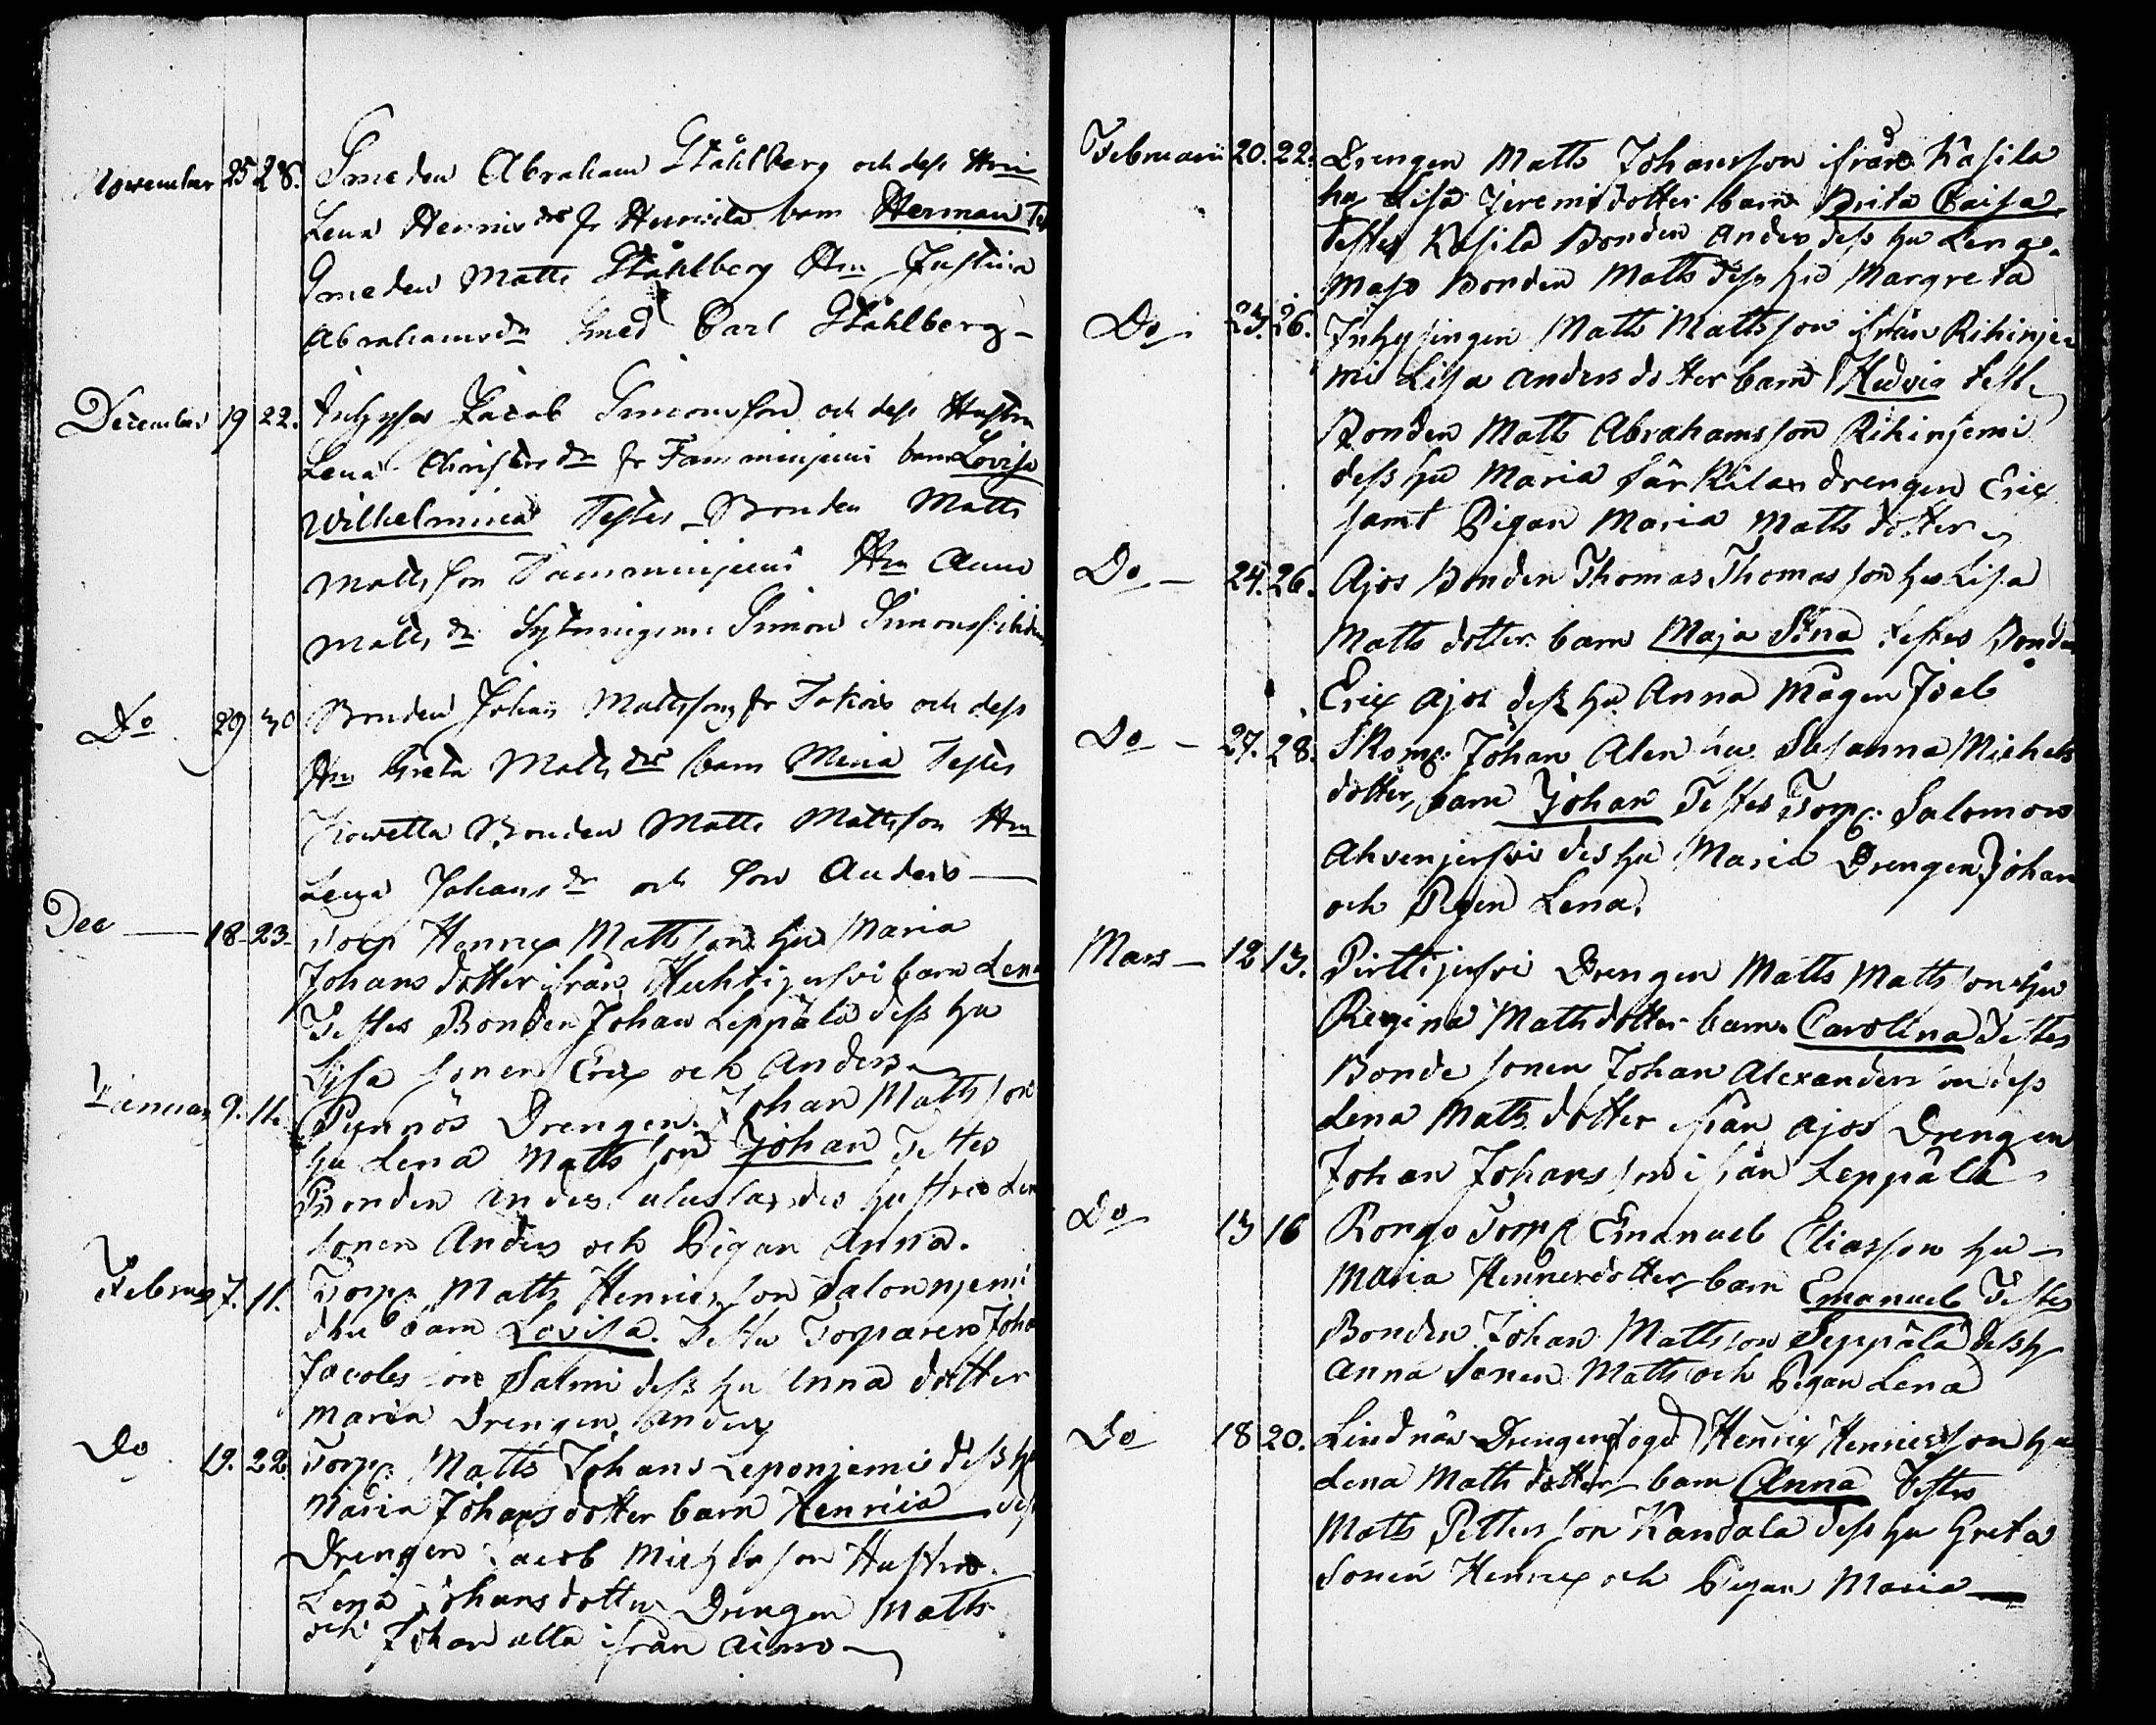 November 25 28. Smeden Abraham Ståhlberg och dess Hru
Lena Henrics dr fr barn Herman Tes
Smeden Matts Ståhlberg Hru Justina
Abrahams dr Smed Carl Ståhlberg -
December 19 22. Inhyses Jacob Simonsson och dess Hustru
Lena Christers dr fr Tamminjemi barn Lovisa
Wilhelmina Testes Bonden Matts
Mattsson Tamminjemi Hru Anna
Matts dr Sytningsm. Simon
Do 29 30 Bonden Johan Mattsson fr Tokois och dess
Hru Greta Matts dr barn Mina Testes
Bonden Matts Mattsson Hru
Lena Johans dr och Son Anders —
Dec — 18 - 23 - Torp Henric Mattsson hu Maria
Johansdotter ifrån Huhtijerfvi barn Lena
Testes Bonden Johan Leppälä dess hu
Lisa sonen Eric och Anders
Januar 9. 11. Pynnös Drengen Johan Mattsson
hu Lena Matts son Johan Testes
Bonden Anders des hustru Len
sonen Anders och Pigan Anna.
Februar 7. 11. Torp: Matts Henricsson Salonnjemi
barn Lovisa. Testes Torparen Joha
Jacobsson Salmi dess hu Anna dotter
Maria Drengen Anders
Do 19. 22 Torp: Matts Johans Leponjemi dess hu
Maria Johansdotter barn Henrica Tes
Drengen Jacob Michelsson Hustru
Lena Johansdotter Drengen Matts
och Johan alla ifrån Aimo —
Februarii 20. 22. Drengen Matts Johansson ifrån Kasila
hu Lisa Jeremi dotter barn Brita Caisa
Testes Kasila Bonden Anders dess hu Lena
Bonden Matts dess hu Margreta
Do 23. 26. Inhysingen Matts Mattsson ifrån Rihinje
mi Lisa Anders dotter barn Hedvig Test
Bonden Matts Abrahamsson Rihinjemi
dess hu Maria Särkilax drengen Eric
samt Pigan Maria Matts dotter
Do — 24. 26. Ajos Bonden Thomas Thomasson hu Lisa
Matts dotter barn Maja Stina Testes Bonden
Eric Ajos dess hu Anna Mågen Joel
Do — 27. 28. Skom: Johan Alen hu Susanna Michels
dotter, barn Johan Testes Torp: Salomon
Ahvenjerfvi des hu Maria Drengen Johan
och Pigan Lena.
Mars — 12 13. Pirttijerfvi Drengen Matts Mattsson hu
Regina Mattsdotter barn Carolina Testes
Bonde sonen Johan Alexandersson dess
Lena Matts dotter ifrån Ajos Drengen
Johan Johansson ifrån Leppälä
Do 13 16 Rongo Torp: Emanuel Eliasson hu —
Maria Henricsdotter barn Emanuel Testes
Bonden Johan Mattsson Seppälä dess h
Anna Sonen Matts och Pigan Lena
Do 18 20. Lindnäs Drengen fogd Henric Henricsson hu
Lena Matts dotter barn Anna Testes
Matts Pettersson Kandola dess hu Greta
Sonen Henric och Pigan Maria —